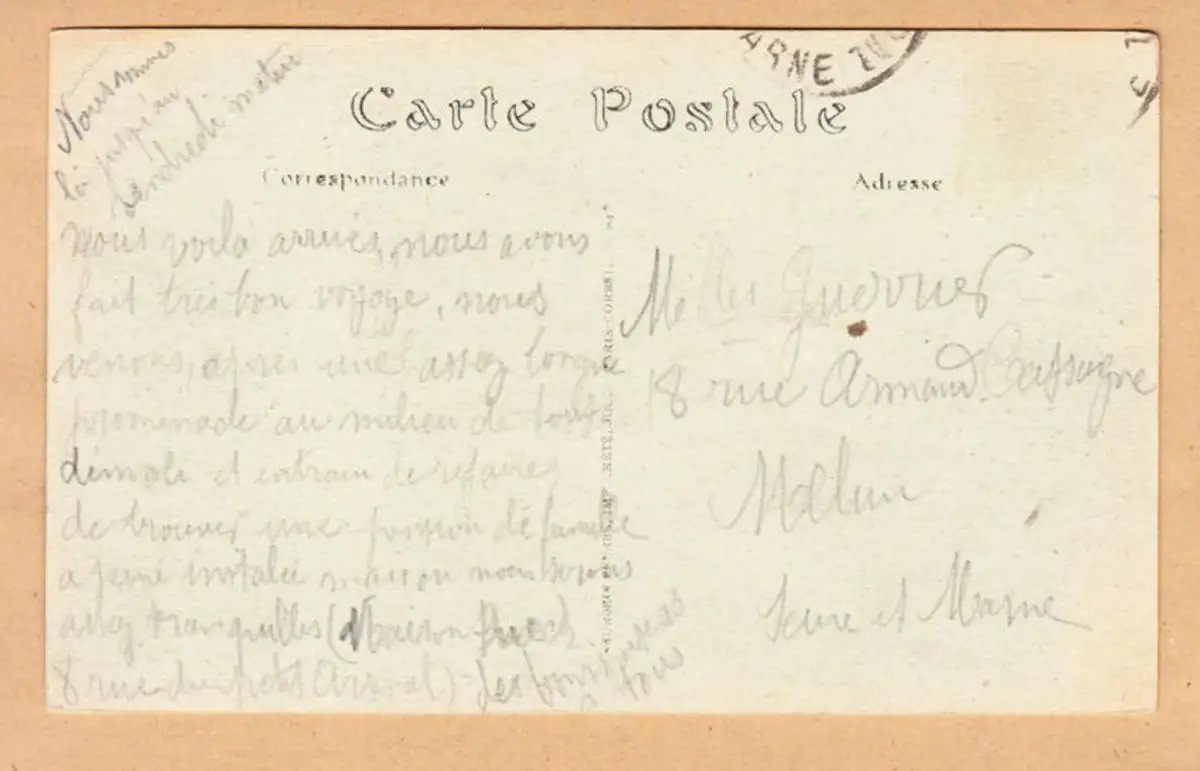 Nous sommes
là jusqu'au
vendredi matin
ARNE
Carte Postale
Correspondance
Adresse
Nous voilà arrivés, nous avons
fait très bon voyage, nous
venons, après une assez longue
promenade au milieu de tout
démoli et entrain de refaire,
de trouver une pension de famille
a peine installée mais ou nous serons
assez tranquilles (Maison
8 rue du petit Arsenal)
à tous
Melles
8 rue Armand Cassagne
Melun
Seine et Marne